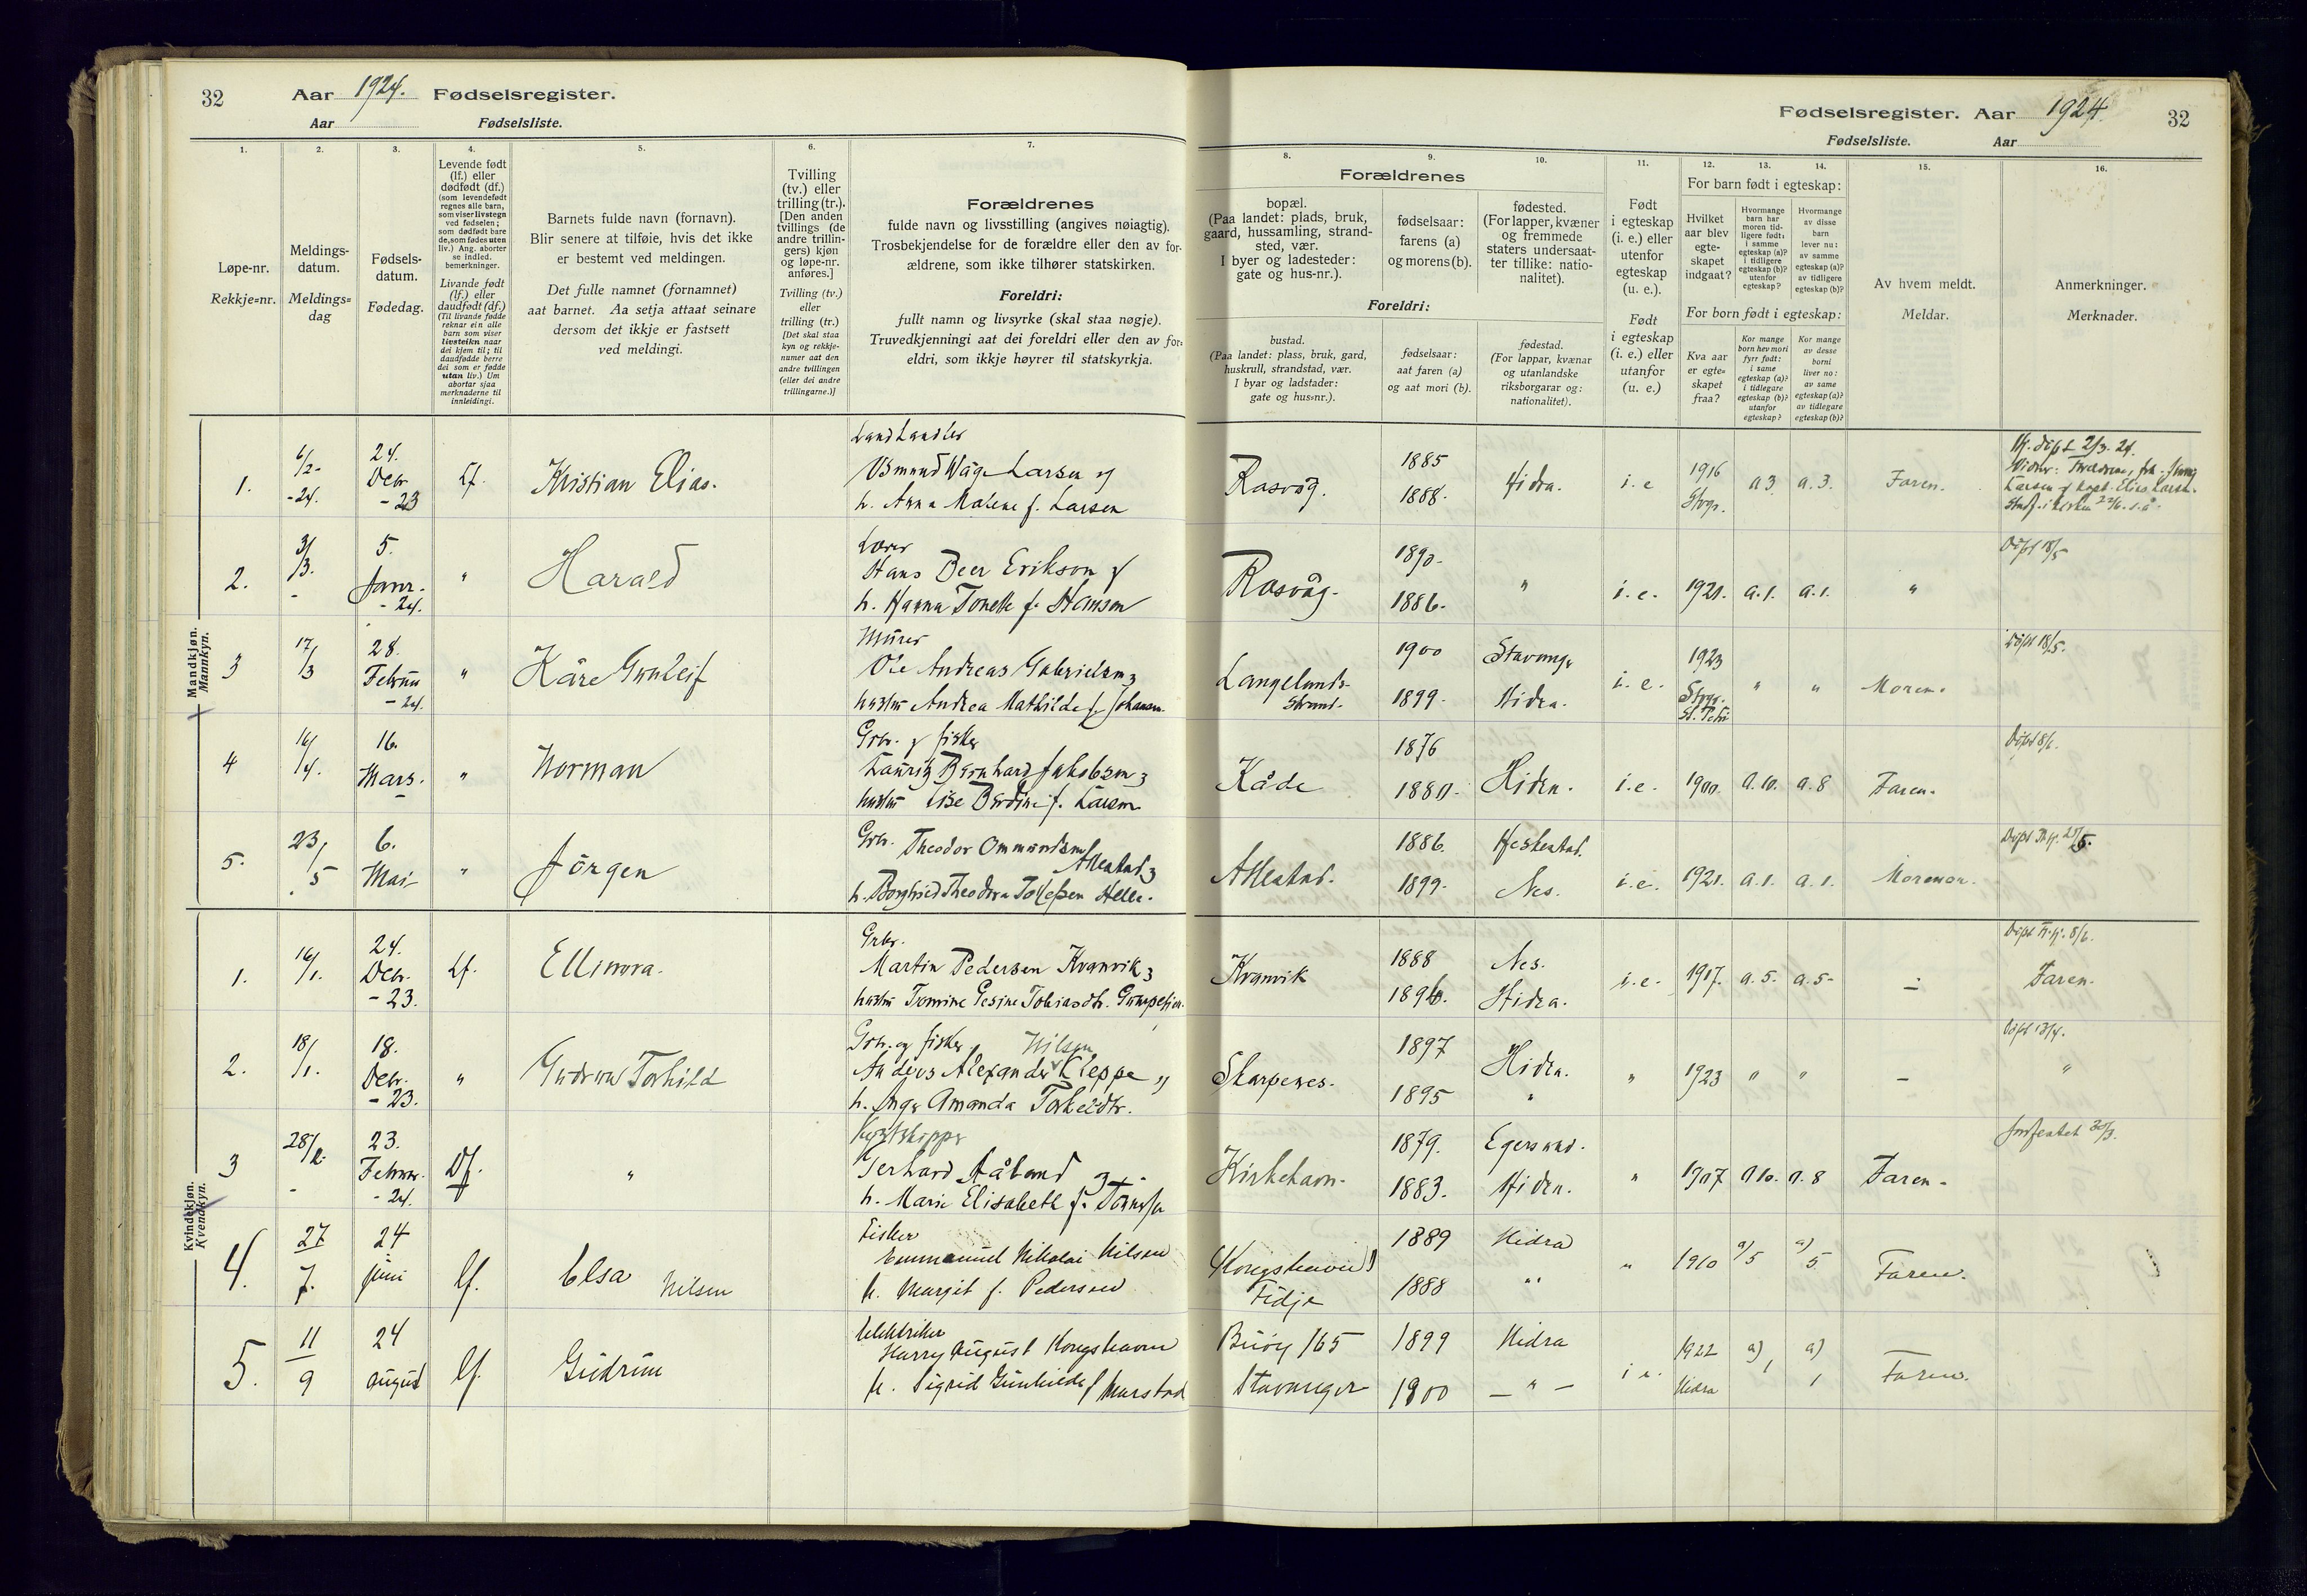 32 Aar 1924. Fødselsregister.
Aar Fødselsliste.
1. 2. 3. 4. 5. 6. 7.
Løpe-nr.
Rekkje=nr.
Meldings-
datum.
Meldings=
dag
Fødsels-
datum.
Fødedag.
Levende født
(lf.) eller
dødfødt (df.)
(som levendefødt
regnes alle barn,
som viser livstegn
ved fødselen;
som dødfødt bare
de, som fødes uten
liv.) Ang. aborter
se indled.
bemerkninger.
Livande født
(lf.) eller
daudfødt (df.)
(Til livande fødde
reknar ein alle
barn som viser
livsteikn naar
dei kjem til; til
daudfødde berre
dei som er fødde
utan liv.) Um
abortar sjaa
merknaderne til
innleidingi.
Barnets fulde navn (fornavn).
Blir senere at tilføie, hvis det ikke
er bestemt ved meldingen.
Det fulle namnet (fornamnet)
aat barnet. Aa setja attaat seinare
dersom det ikkje er fastsett
ved meldingi.
Tvilling
(tv.) eller
trilling (tr.).
[Den anden
tvillings (de
andre trillin-
gers) kjøn
og løpe-nr.
anføres.]
Tvilling (tv.)
eller
trilling (tr.)
[Det skal staa
kyn og rekkje-
numer aat den
andre tvillingen
(eller dei andre
trillingarne.)]
Forældrenes
fulde navn og livsstilling (angives nøiagtig).
Trosbekjendelse for de forældre eller den av for-
ældrene, som ikke tilhører statskirken.
Foreldri:
fullt namn og livsyrke (skal staa nøgje).
Truvedkjenningi aat dei foreldri eller den av for=
eldri, som ikkje høyrer til statskyrkja.
Mandkjøn.
Mannkyn.
1. 6/2- -24. 24. Debr -23 Lf. Kristian Elias.
Landhandler
Osmund Wåge Larsen og
h. Anna Malene f. Larsen
2. 3/3. - 5. Janr. -24. " Harald
Lærer
Hans Beer Erikson &
h. Hanna Tonette f. Hansen
3 17/3 28. Februar -24. " Kåre Gunleif
Murer
Ole Andreas Gabrielsen &
hustru Andrea Mathilde f. Johansen.
4 16/4. 16. Mars. " Norman
Grbr. & fisker
Lauritz Bernhard Jakobsen &
hustru Lise Berdine f. Larsen
5. 23/5 6. Mai " Jörgen
Grbr. Theodor Ommundsen
Alleatad &
h. Borghild Theodora Tollefsen Helle.
Kvindekjøn.
Kvendkyn.
1. 16/1. 24. Debr. -23. Lf. Ellinora.
Grbr.
Martin Pedersen Kvanvik &
hustru Tomine Gesine Tobiasdtr.
2. 18/1. 18. Debr. -23. " Gudrun Torhild
Grbr. og fisker Nilsen
Anders Alexander Kleppe og
h. Inger Amanda Torkelsdtr.
3 28/2. - 23. Februar. -24. Df. "
Kystskipper
Gerhard Aåland &
h. Marie Elisabeth f.
4. 27/7. 24 juni lf. Elsa Nilsen
Fisker
Emmanuel Nikolai Nilsen
h. Margit f. Pedersen
5. 11/9 24 august lf. Gudrun
Elektriker
Harry August Kongshavn
h. Sigrid Gunhilde f Marstad
Fødselsregister. Aar 1924. 32
Fødselsliste. Aar
8. 9. 10. 11. 12. 13. 14. 15. 16.
Forældrenes
bopæl.
(Paa landet: plads, bruk,
gaard, hussamling, strand-
sted, vær.
I byer og ladesteder:
gate og hus-nr.).
fødselsaar:
farens (a)
og morens (b).
fødested.
(For lapper, kvæner
og fremmede
staters undersaat-
ter tillike: natio-
nalitet).
Foreldri:
bustad.
(Paa landet: plass, bruk, gard,
huskrull, strandstad, vær.
I byar og ladstader:
gate og hus=nr.).
fødselsaar:
aat faren (a)
og aat mori (b).
fødestad.
(For lappar, kvænar
og utanlandske
riksborgarar og:
nationalitet).
Født
i egteskap
(i. e.) eller
utenfor
egteskap
(u. e.).
Født
i egteskap
(i. e.) eller
utanfor
(u. e.)
For barn født i egteskap:
Hvilket
aar blev
egte-
skapet
indgaat?
Hvormange
barn har
moren tid-
ligere født:
i samme
egteskap (a)?
i tidligere
egteskap (b)?
utenfor
egteskap?
Hvormange
av disse
barn
lever nu:
av samme
egteskap (a)?
av tidligere
egteskap (b)?
For born født i egteskap:
Kva aar
er egte=
skapet
fraa?
Kor mange
born hev mori
fyrr født:
i same
egteskap (a)?
i tidlegare
egteskap (b)?
utanfor
egteskap?
Kor mange
av desse
borni
liver no:
av same
egteskap (a)?
av tidlegare
egteskap (b)?
Av hvem meldt.
Meldar.
Anmerkninger.
Merknader.
Rasvåg. 1885 1888. Hidra. i. e 1916 Stvgr. a 3 a. 3. Faren.
Hj. döpt 2/3. 24.
Larsen & kapt. Elias Larsen.
Stadf. i kirken 22/6. s. å.
Rasvåg. 1890. 1886. " i. e. 1921. a. 1. a. 1. " Döpt 18/5
Langelands-
strand. 1900 1899. Stavanger Hidra. i. e. 1923 Stvgr. St. Petri " " Moren. Döpt 18/5.
Kåde 1876 1880. Hidra. i. e. 1900. a. 10. a. 8 Faren. Döpt 8/6.
Alleatad. 1886. 1899. Heskestad. Nes. i. e. 1921. a. 1. a. 1. Mormor. Döpt Fl. kj. 25/5.
Kvanvik 1888 1896. Nes. Hidra. i. e. 1917. a. 5. a. 5- - Faren. Döpt 8/6.
Skarpenes. 1897 1895 Hidra. " " 1923 " " - " Döpt 13/4.
Kirkehavn. 1879. 1883. Egersund. Hidra. " 1907 a 10. a. 8 Faren. Jordfestet 30/3.
(Kongshavn)
Fidje 1889 1888 Hidra " " 1910 a) 5 a) 5 Faren.
Buøy 165
Stavanger 1899 1900 Hidra — " — i e. 1922 Hidra a) 1 a) 1 Faren.